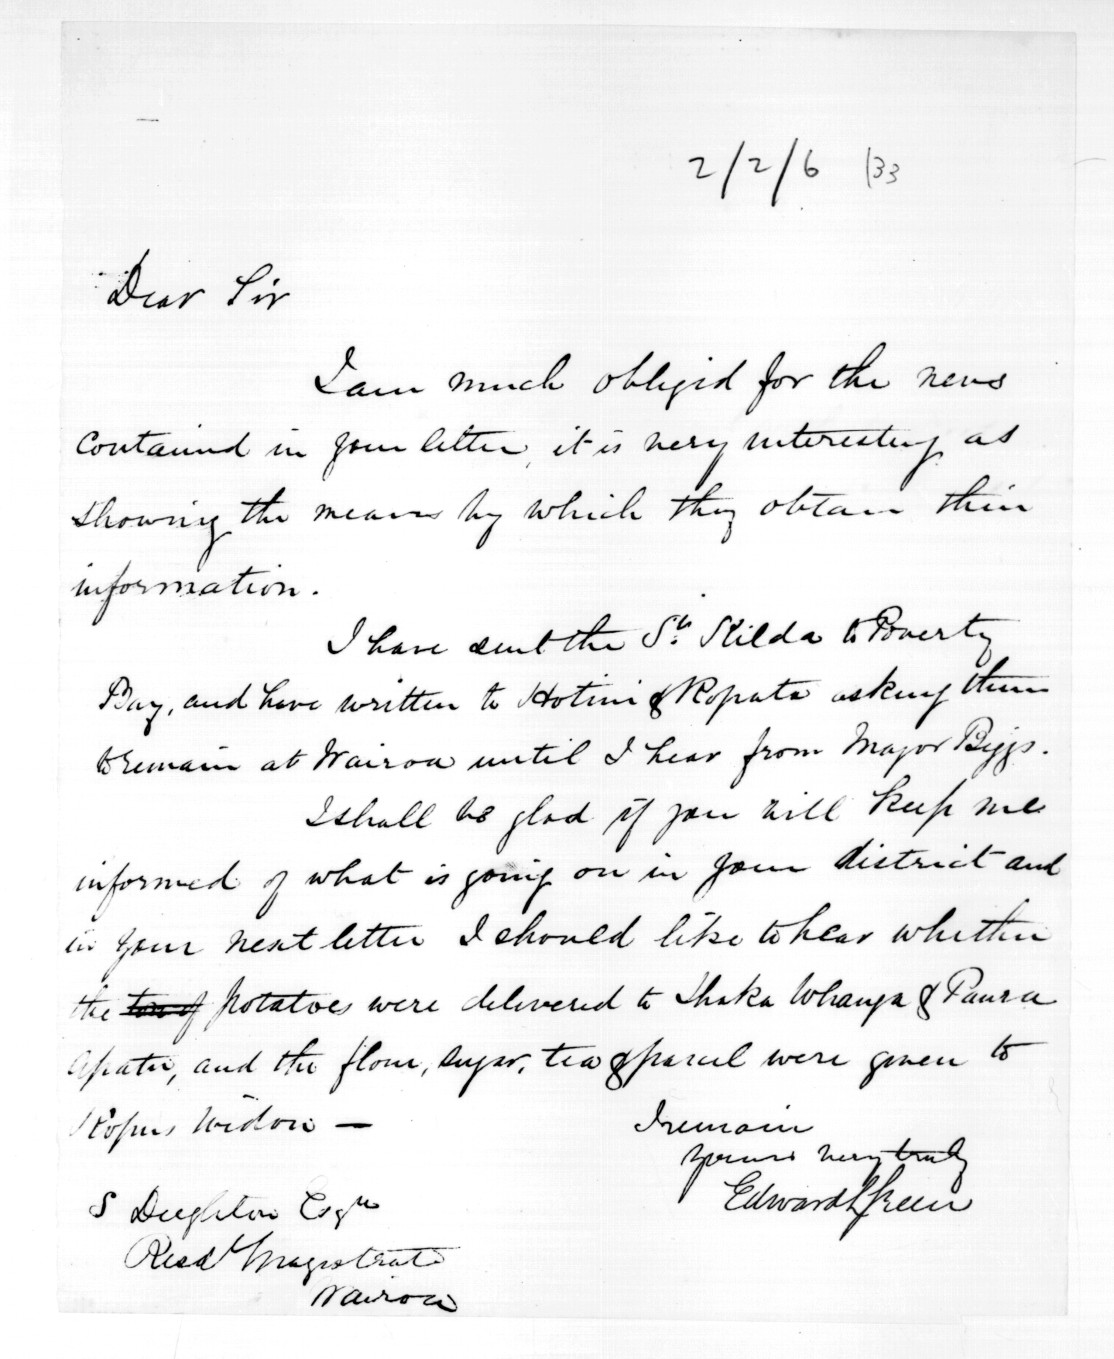 2/2/6 133
Dear Sir
I am much obliged for the news
contained in your letter, it is very interesting as
showing the means by which they obtain their
information.
I have sent the St. Kilda to Poverty
Bay, and have written to Hotini & Ropata asking them
to remain at Wairoa until I hear from Major Biggs.
I shall be glad if you will keep me
informed of what is going on in your district and
in your next letter I should like to hear whether
the potatoes were delivered to Ihaka Whanga & Paura
Apatu, and the flour, sugar, tea & parcel were given to
Kopus widow —
I remain
yours very truly
Edward Green
S Deighton Esqre
Resdt Magistrate
Wairoa